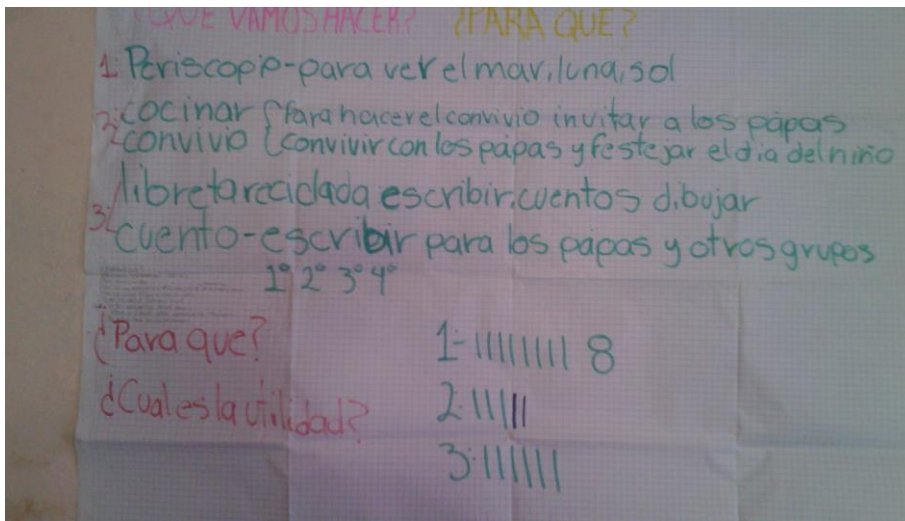 ¿QUE VAMOS HACER? ¿PARA QUE?
1: Periscopio-para ver el mar, luna, sol
2: cocinar { Para hacer el convivio invitar a los pápas
convivio { convivir con los pápas y festejar el dia del niño
3: libreta reciclada escribir, cuentos dibujar
cuento-escribir para los pápas y otros grupos
1° 2° 3° 4°
¿Para que? 1-||||||||| 8
¿Cual es la utilidad? 2:||||||
3:|||||||